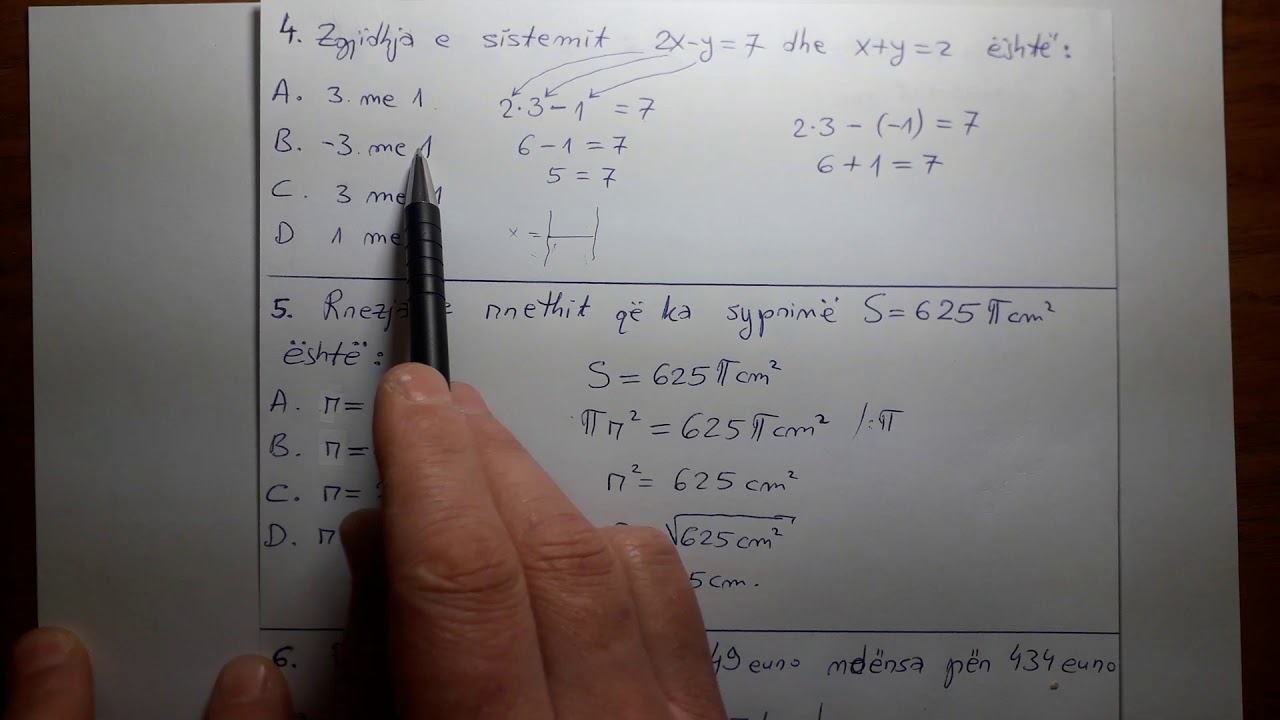 4. Zgjidhja e sistemit 2x-y=7 dhe x+y=2 është:
A. 3 me 1
B. -3 me 1
C. 3 me 1
D 1 me
2·3-1 = 7
6-1 = 7
5 = 7
x =
2·3-(-1) = 7
6+1 = 7
5. Rrezja e rrethit që ka syprinë S=625πcm²
është:
A. r=
B. r=
C. r=
D. r
S = 625πcm²
πr² = 625πcm² /:π
r² = 625 cm²
√625cm²
5cm.
6.
49 euro mdërsa për 434 euro